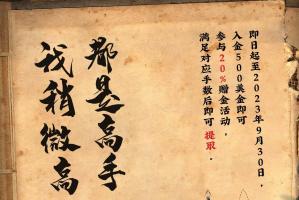 即日起至2023年9月30日，
入金500美金即可
参与20%赠金活动，
满足对应手数后即可提取。
都是高手
我稍微高